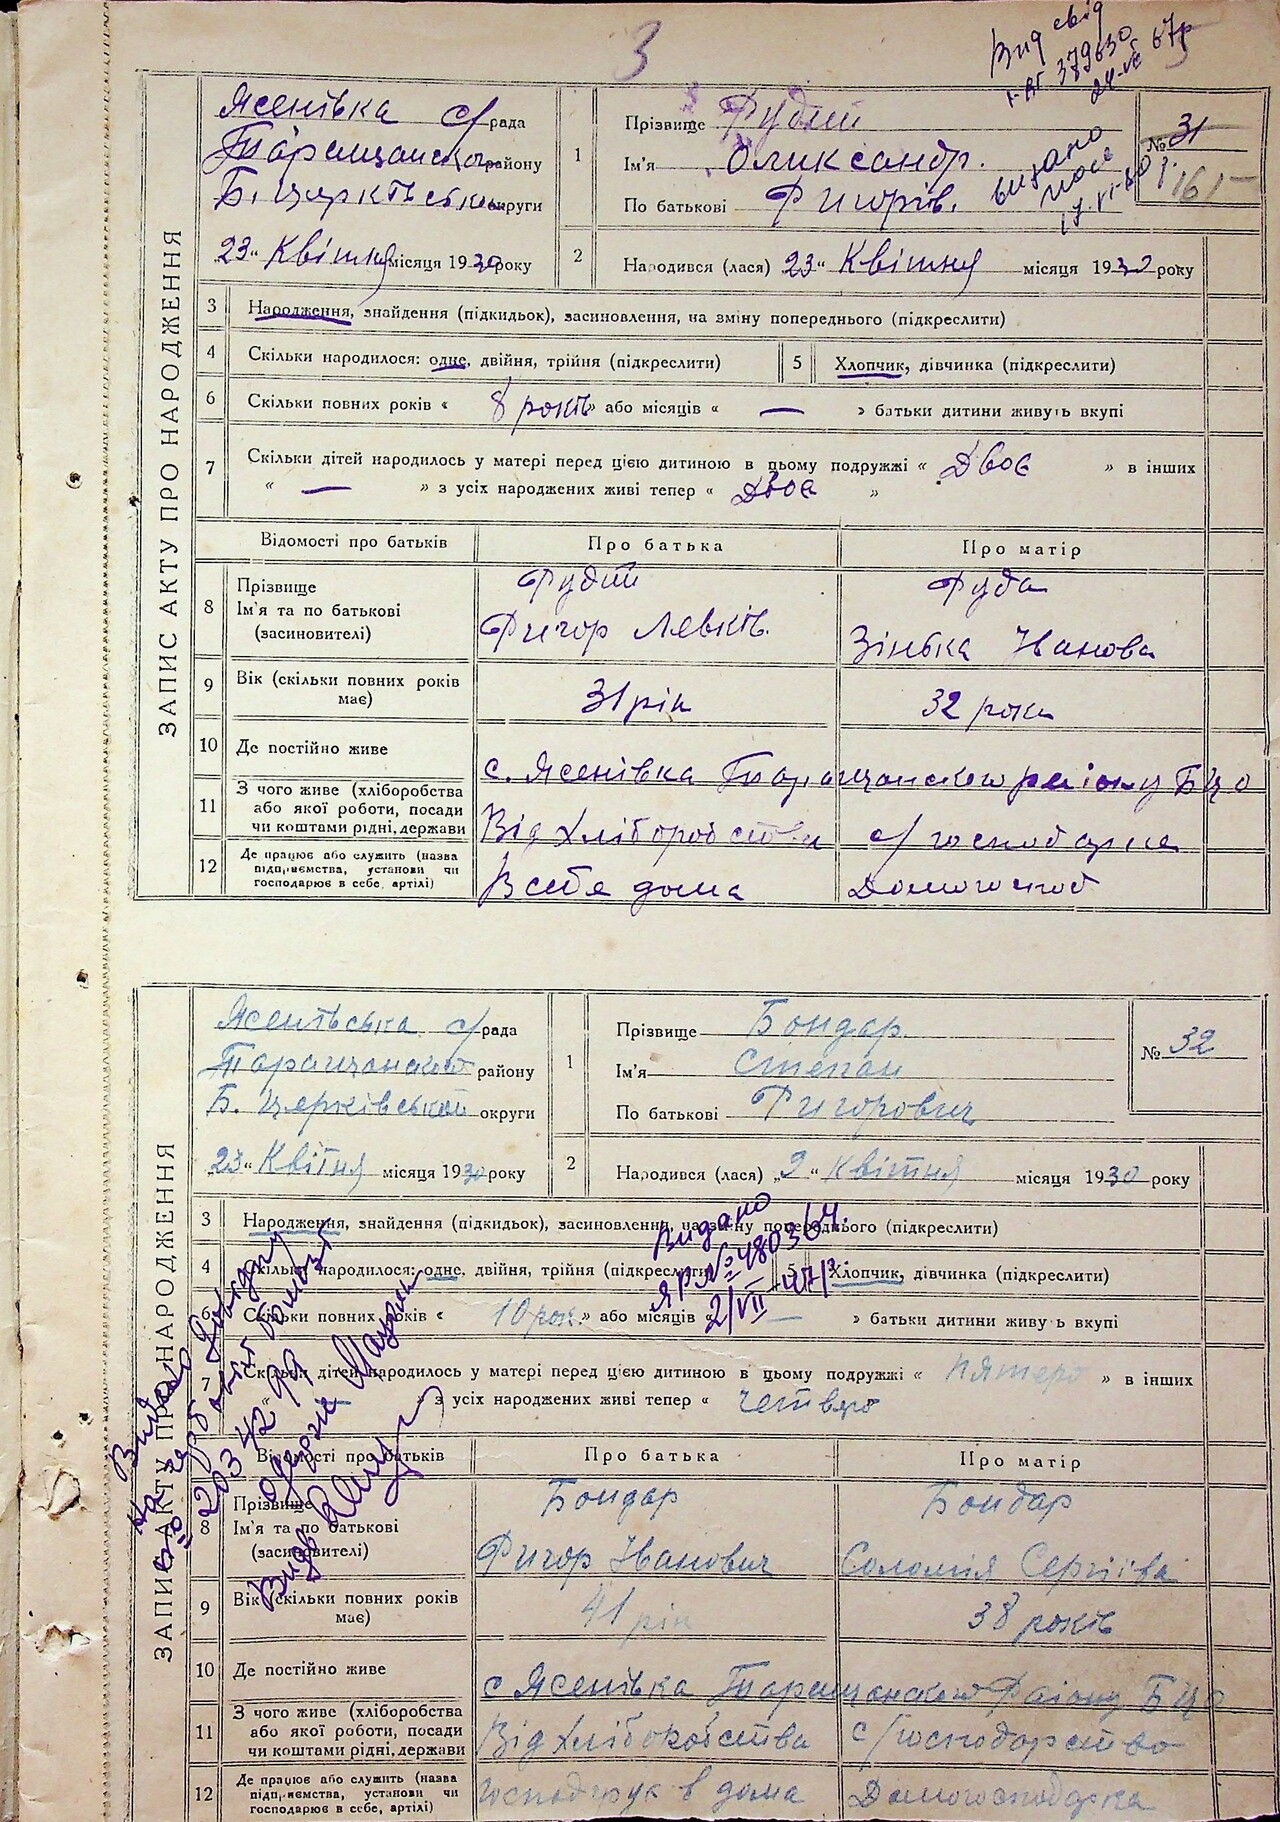 3
Вид свід
379630
67р
Ясенівка с/рада
Таращанськ району
Б. Церківськ округи
"23" Квітня місяця 1930 року
1
Прізвище Рудий
Ім'я Олександр.
По батькові Григорів.
видано
17.VI-
№ 31
161
2
Народився (лася) "23" Квітня місяця 1930 року
ЗАПИС АКТУ ПРО НАРОДЖЕННЯ
3 Народження, знайдення (підкидьок), засиновлення, на зміну попереднього (підкреслити)
4 Скільки народилося: одне, двійня, трійня (підкреслити) 5 Хлопчик, дівчинка (підкреслити)
6 Скільки повних років « 8 років » або місяців « — » батьки дитини живуть вкупі
7 Скільки дітей народилось у матері перед цією дитиною в цьому подружжі « Двоє » в інших
« — » з усіх народжених живі тепер « Двоє »
Відомості про батьків Про батька Про матір
8 Прізвище Рудий Руда
Ім'я та по батькові Григор Левків. Зінька Іванова
(засиновителі)
9 Вік (скільки повних років має) 31 рік 32 роки
10 Де постійно живе с. Ясенівка Таращанского району БЦО
11 З чого живе (хліборобства
або якої роботи, посади Від Хліборобства с/господарка
чи коштами рідні, держави
12 Де працює або служить (назва
підприємства, установи чи
господарює в себе, артілі) В себе дома Домогоспод
Ясенівська с/рада
Таращанской району
Б. Церківської округи
"23" Квітня місяця 1930 року
1
Прізвище Бондар
Ім'я Степан
По батькові Григорович
№ 32
2
Народився (лася) "2" Квітня місяця 1930 року
ЗАПИС АКТУ ПРО НАРОДЖЕННЯ
3 Народження, знайдення (підкидьок), засиновлення, на зміну попереднього (підкреслити)
Видано
ЯР № 480364.
2/VII-47р
4 Скільки народилося: одне, двійня, трійня (підкреслити) 5 Хлопчик, дівчинка (підкреслити)
6 Скільки повних років « 10 рок. » або місяців « — » батьки дитини живуть вкупі
7 Скільки дітей народилось у матері перед цією дитиною в цьому подружжі « пятеро » в інших
з усіх народжених живі тепер « четверо
Видано довідку
20342
Відомості про батьків Про батька Про матір
8 Прізвище Бондар Бондар
Ім'я та по батькові Григор Іванович Соломія Сергіїва
(засиновителі)
9 Вік (скільки повних років має) 41 рік 38 років
10 Де постійно живе с Ясенівка Таращанского Району БЦО
11 З чого живе (хліборобства
або якої роботи, посади Від Хліборобства с/господарство
чи коштами рідні, держави
12 Де працює або служить (назва
підприємства, установи чи
господарює в себе, артілі) в дома Домогосподарка